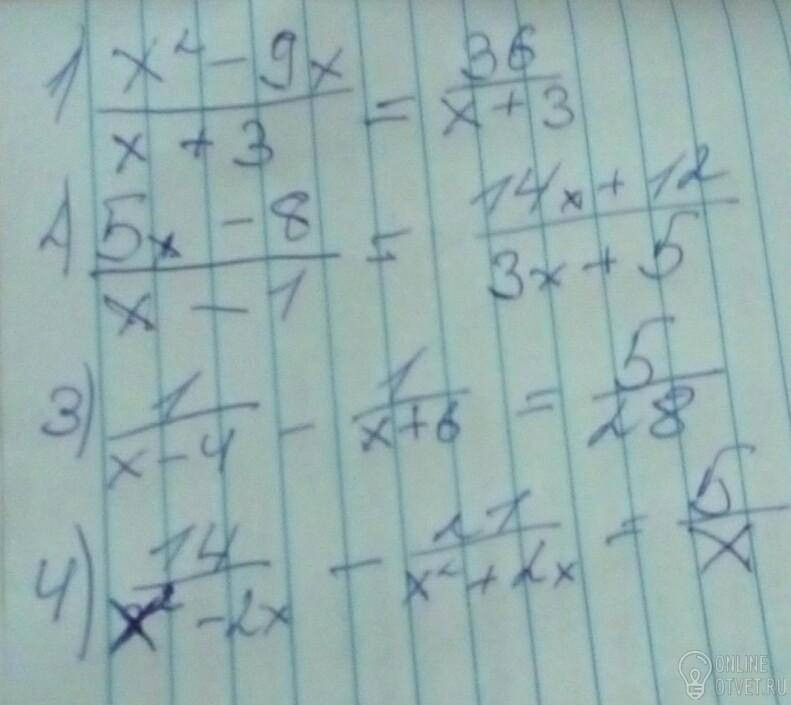 1) (x² - 9x)/(x + 3) = 36/(x + 3)
2) (5x - 8)/(x - 1) = (14x + 12)/(3x + 5)
3) 1/(x - 4) - 1/(x + 6) = 5/28
4) 14/(x² - 2x) - 21/(x² + 2x) = 5/x
ONLINE
OTVET.RU